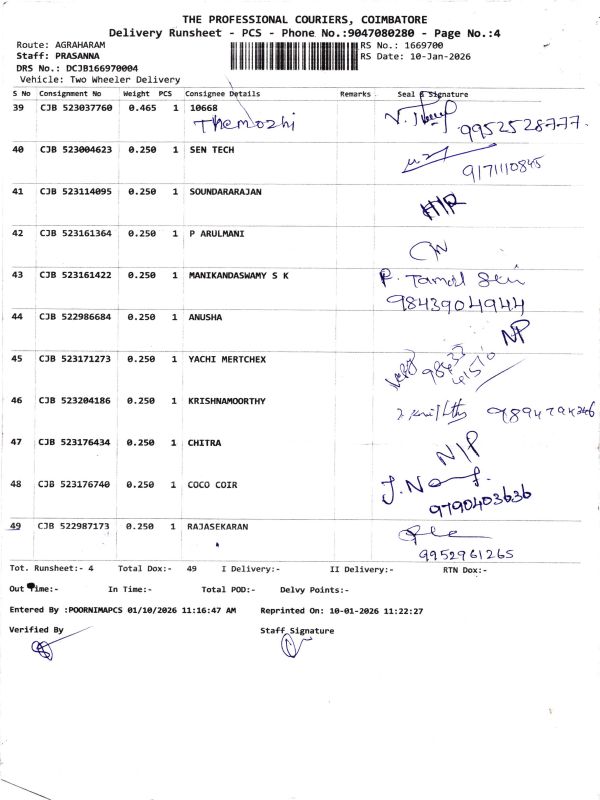 THE PROFESSIONAL COURIERS, COIMBATORE
Delivery Runsheet - PCS - Phone No.:9047080280 - Page No.:4
Route: AGRAHARAM RS No.: 1669700
Staff: PRASANNA RS Date: 10-Jan-2026
DRS No.: DCJB166970004
Vehicle: Two Wheeler Delivery
S No Consignment No Weight PCS Consignee Details Remarks Seal & Signature
39 CJB 523037760 0.465 1 10668
Themozhi 9952528777.
40 CJB 523004623 0.250 1 SEN TECH
9171110845
41 CJB 523114095 0.250 1 SOUNDARARAJAN
42 CJB 523161364 0.250 1 P ARULMANI
43 CJB 523161422 0.250 1 MANIKANDASWAMY S K P. Tamil
9843904944
44 CJB 522986684 0.250 1 ANUSHA
NP
45 CJB 523171273 0.250 1 YACHI MERTCHEX
98433
41510
46 CJB 523204186 0.250 1 KRISHNAMOORTHY 9894794246
47 CJB 523176434 0.250 1 CHITRA N/P
48 CJB 523176740 0.250 1 COCO COIR
9790403636
49 CJB 522987173 0.250 1 RAJASEKARAN
9952961265
Tot. Runsheet:- 4 Total Dox:- 49 I Delivery:- II Delivery:- RTN Dox:-
Out Time:- In Time:- Total POD:- Delvy Points:-
Entered By :POORNIMAPCS 01/10/2026 11:16:47 AM Reprinted On: 10-01-2026 11:22:27
Verified By Staff Signature